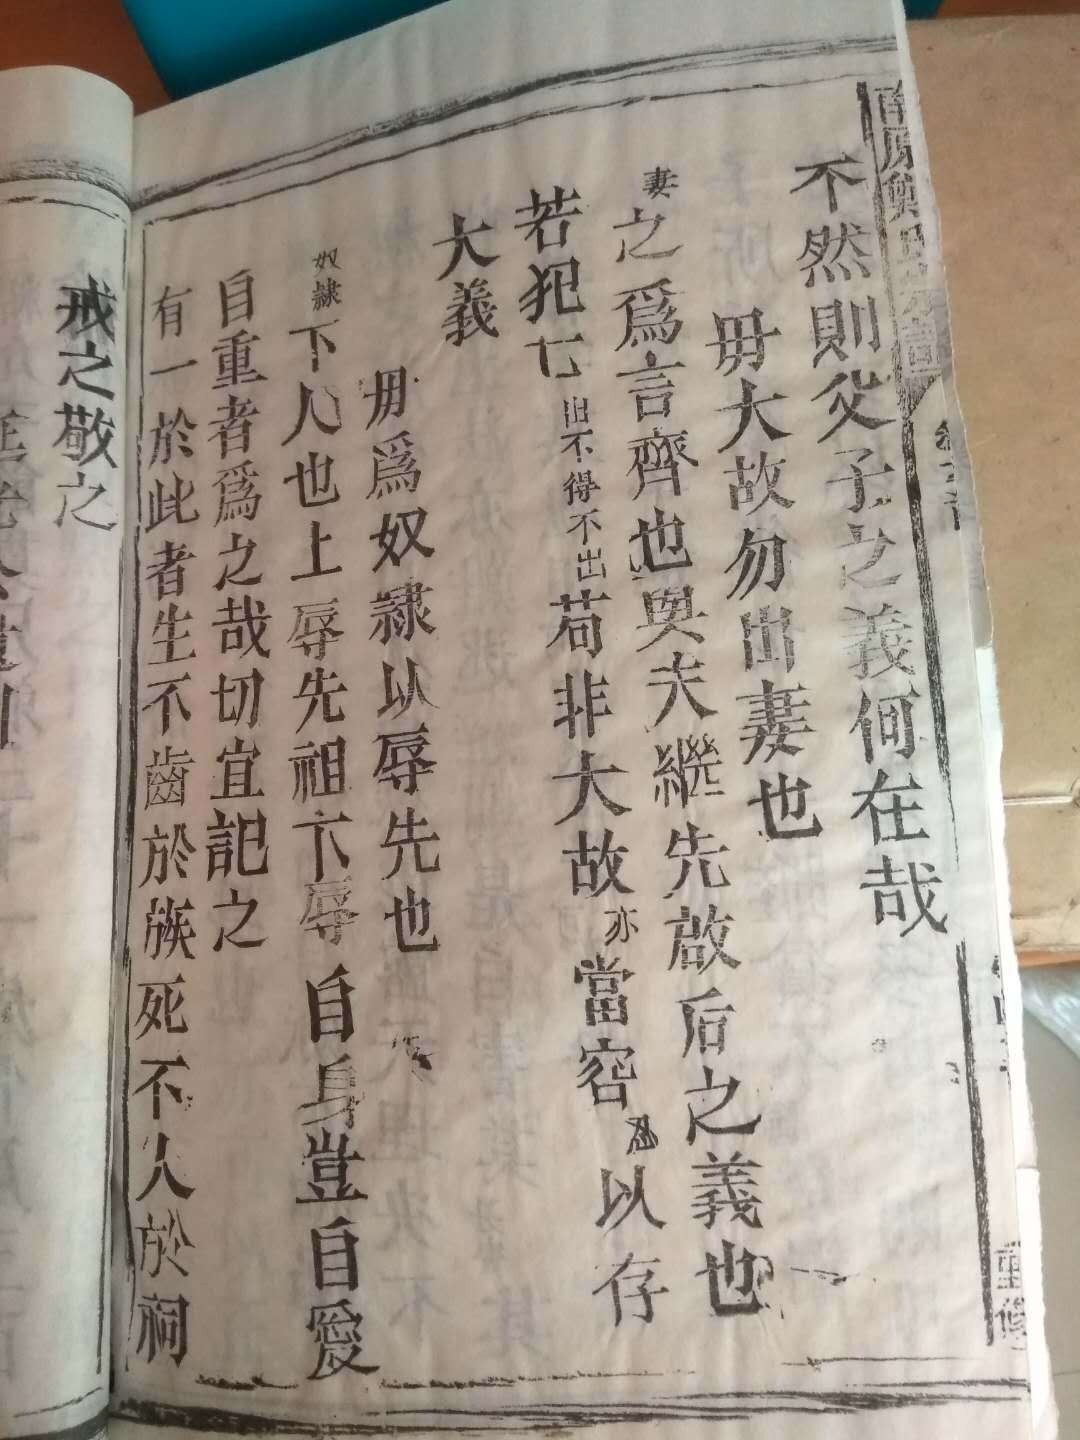 不然則父子之義何在哉
毋大故勿出妻也
妻之爲言齊也與夫繼先啟后之義也
若犯七出不得不出苟非大故亦當容忍以存
大義
毋爲奴隸以辱先也
奴隸下人也上辱先祖下辱自身豈自愛
自重者爲之哉切宜記之
有一於此者生不齒於族死不入於祠
戒之敬之
重修